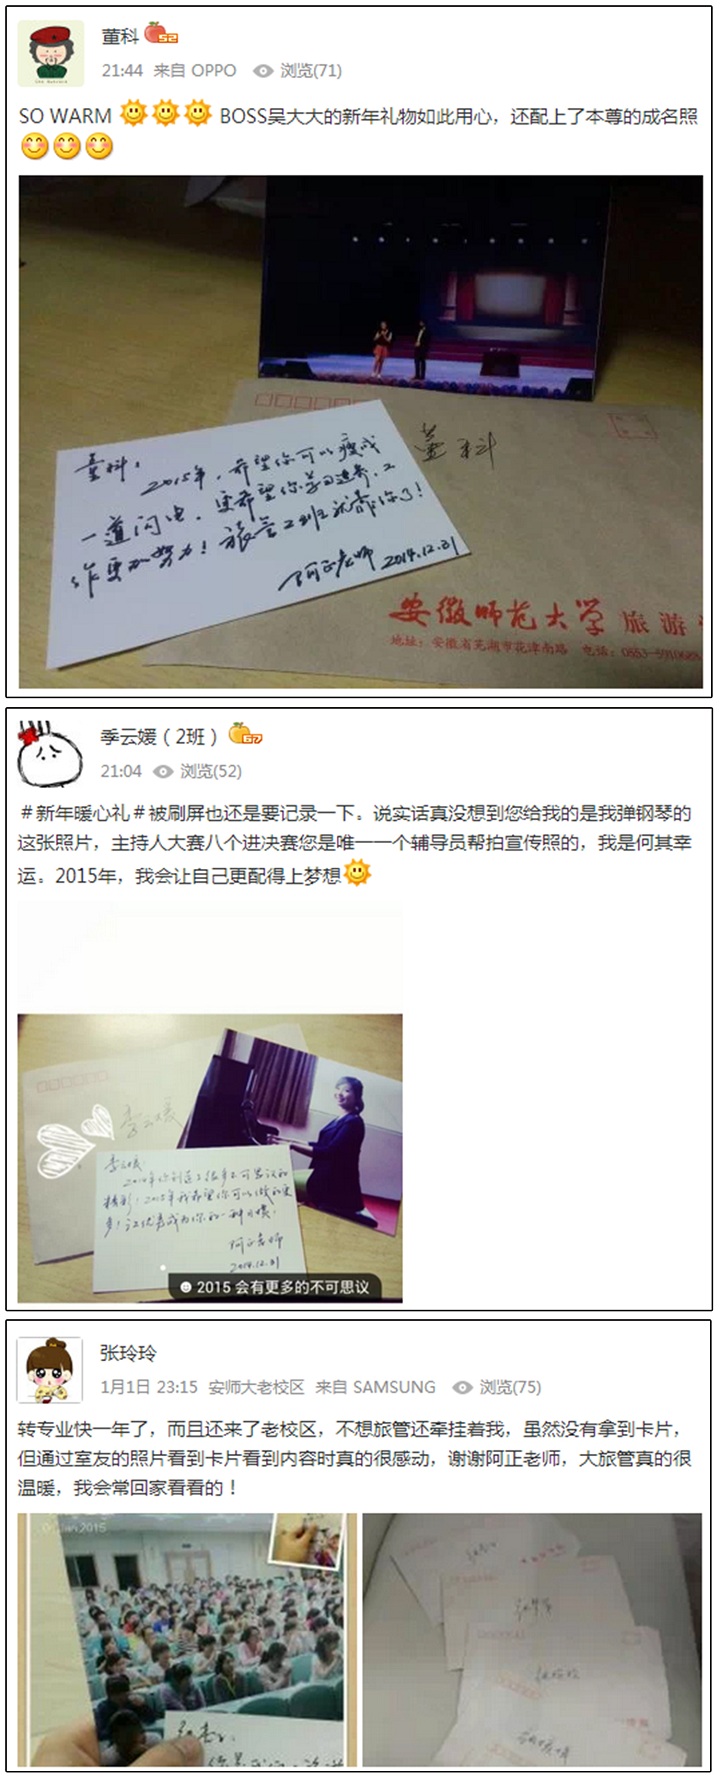 董科
21:44 来自 OPPO 浏览(71)
SO WARM BOSS吴大大的新年礼物如此用心，还配上了本尊的成名照
董科：
2015年，希望你可以瘦成
一道闪电，更希望你学习进步，工
作更加努力！旅管2班就靠你了！
阿正老师 2014.12.31
董科
安徽师范大学 旅游
地址：安徽省芜湖市花津南路 电话：0553-5910688
季云媛（2班）
21:04 浏览(52)
＃新年暖心礼＃被刷屏也还是要记录一下。说实话真没想到您给我的是我弹钢琴的
这张照片，主持人大赛八个进决赛您是唯一一个辅导员帮拍宣传照的，我是何其幸
运。2015年，我会让自己更配得上梦想
季云媛
季云媛：
2014年你创造了很多不可思议的
精彩，2015年我希望你可以做的更
多！让优秀成为你的一种习惯！
阿正老师
2014.12.31
2015 会有更多的不可思议
张玲玲
1月1日 23:15 安师大老校区 来自 SAMSUNG 浏览(75)
转专业快一年了，而且还来了老校区，不想旅管还牵挂着我，虽然没有拿到卡片，
但通过室友的照片看到卡片看到内容时真的很感动，谢谢阿正老师，大旅管真的很
温暖，我会常回家看看的！